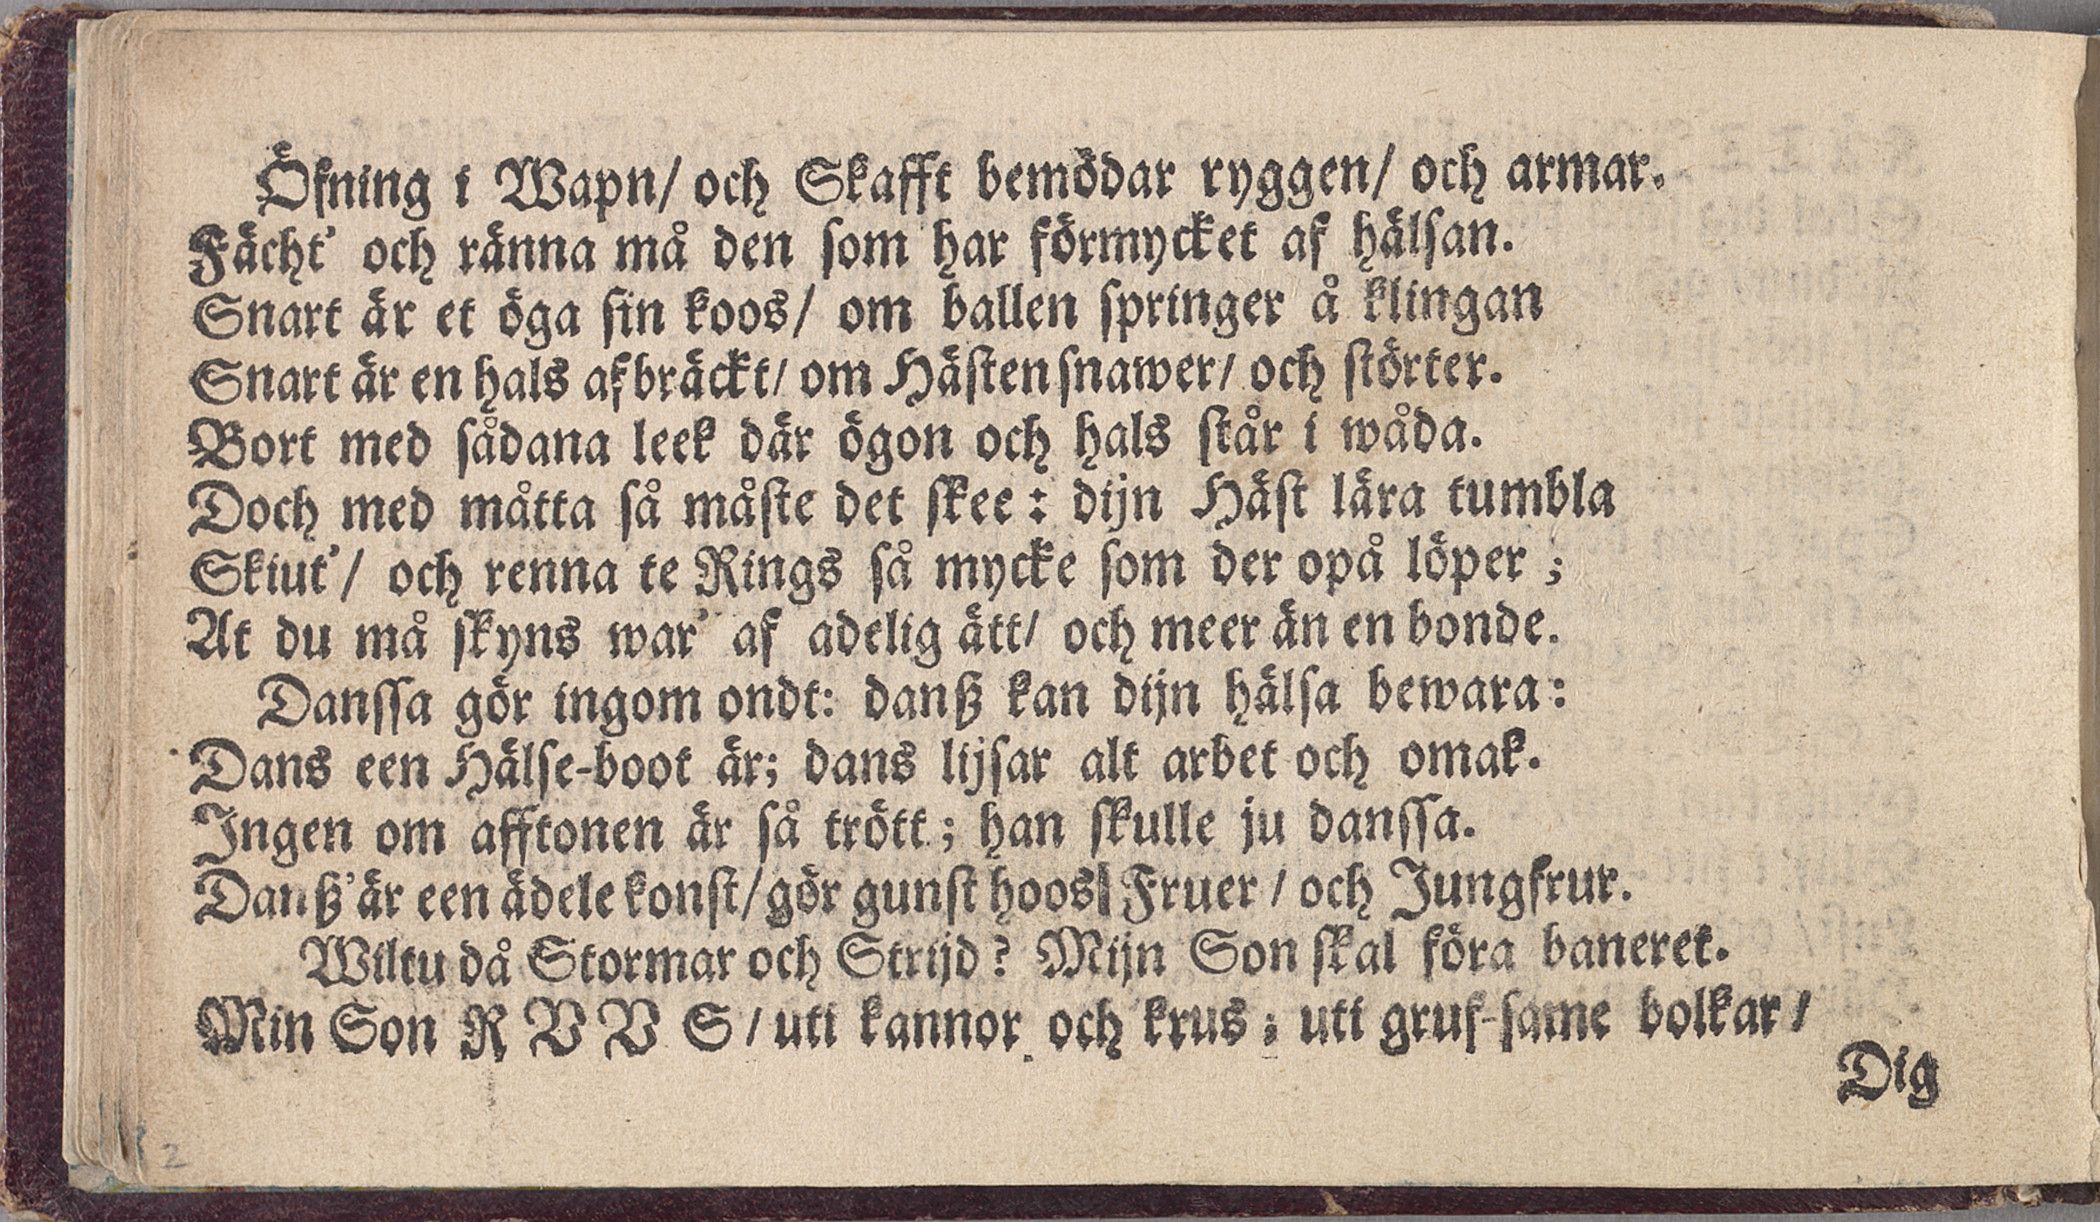 Öfning i Wapn/ och Skafft bemödar ryggen/ och armar.
Fächt' och ränna må den som har förmycket af hälsan.
Snart är et öga sin koos/ om ballen springer å klingan
Snart är en hals afbräckt/ om Hästen snawer/ och störter.
Bort med sådana leek där ögon och hals står i wåda.
Doch med måtta så måste det skee: dijn Häst lära tumbla
Skiut'/ och renna te Rings så mycke som der opå löper;
At du må skyns war' af adelig ätt/ och meer än en bonde.
Danssa gör ingom ondt: danß kan dijn hälsa bewara:
Dans een Hälse-boot är; dans lijsar alt arbet och omak.
Ingen om afftonen är så trött; han skulle ju danssa.
Danß' är een ädele konst/ gör gunst hoos Fruer/ och Jungfrur.
Wiltu då Stormar och Strijd? Mijn Son skal föra baneret.
Min Son R V V S/ uti kannor och krus; uti gruf-same bolkar/
Dig
2